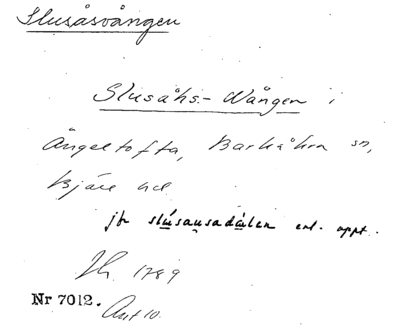 Slusåsvången
Slusåhs.- Wången i
Ängeltofta, Barkåkra sn,
Bjäre hd.
jfr slúsausadálen enl. uppt.
1789
Nr 7012. Avt 10.